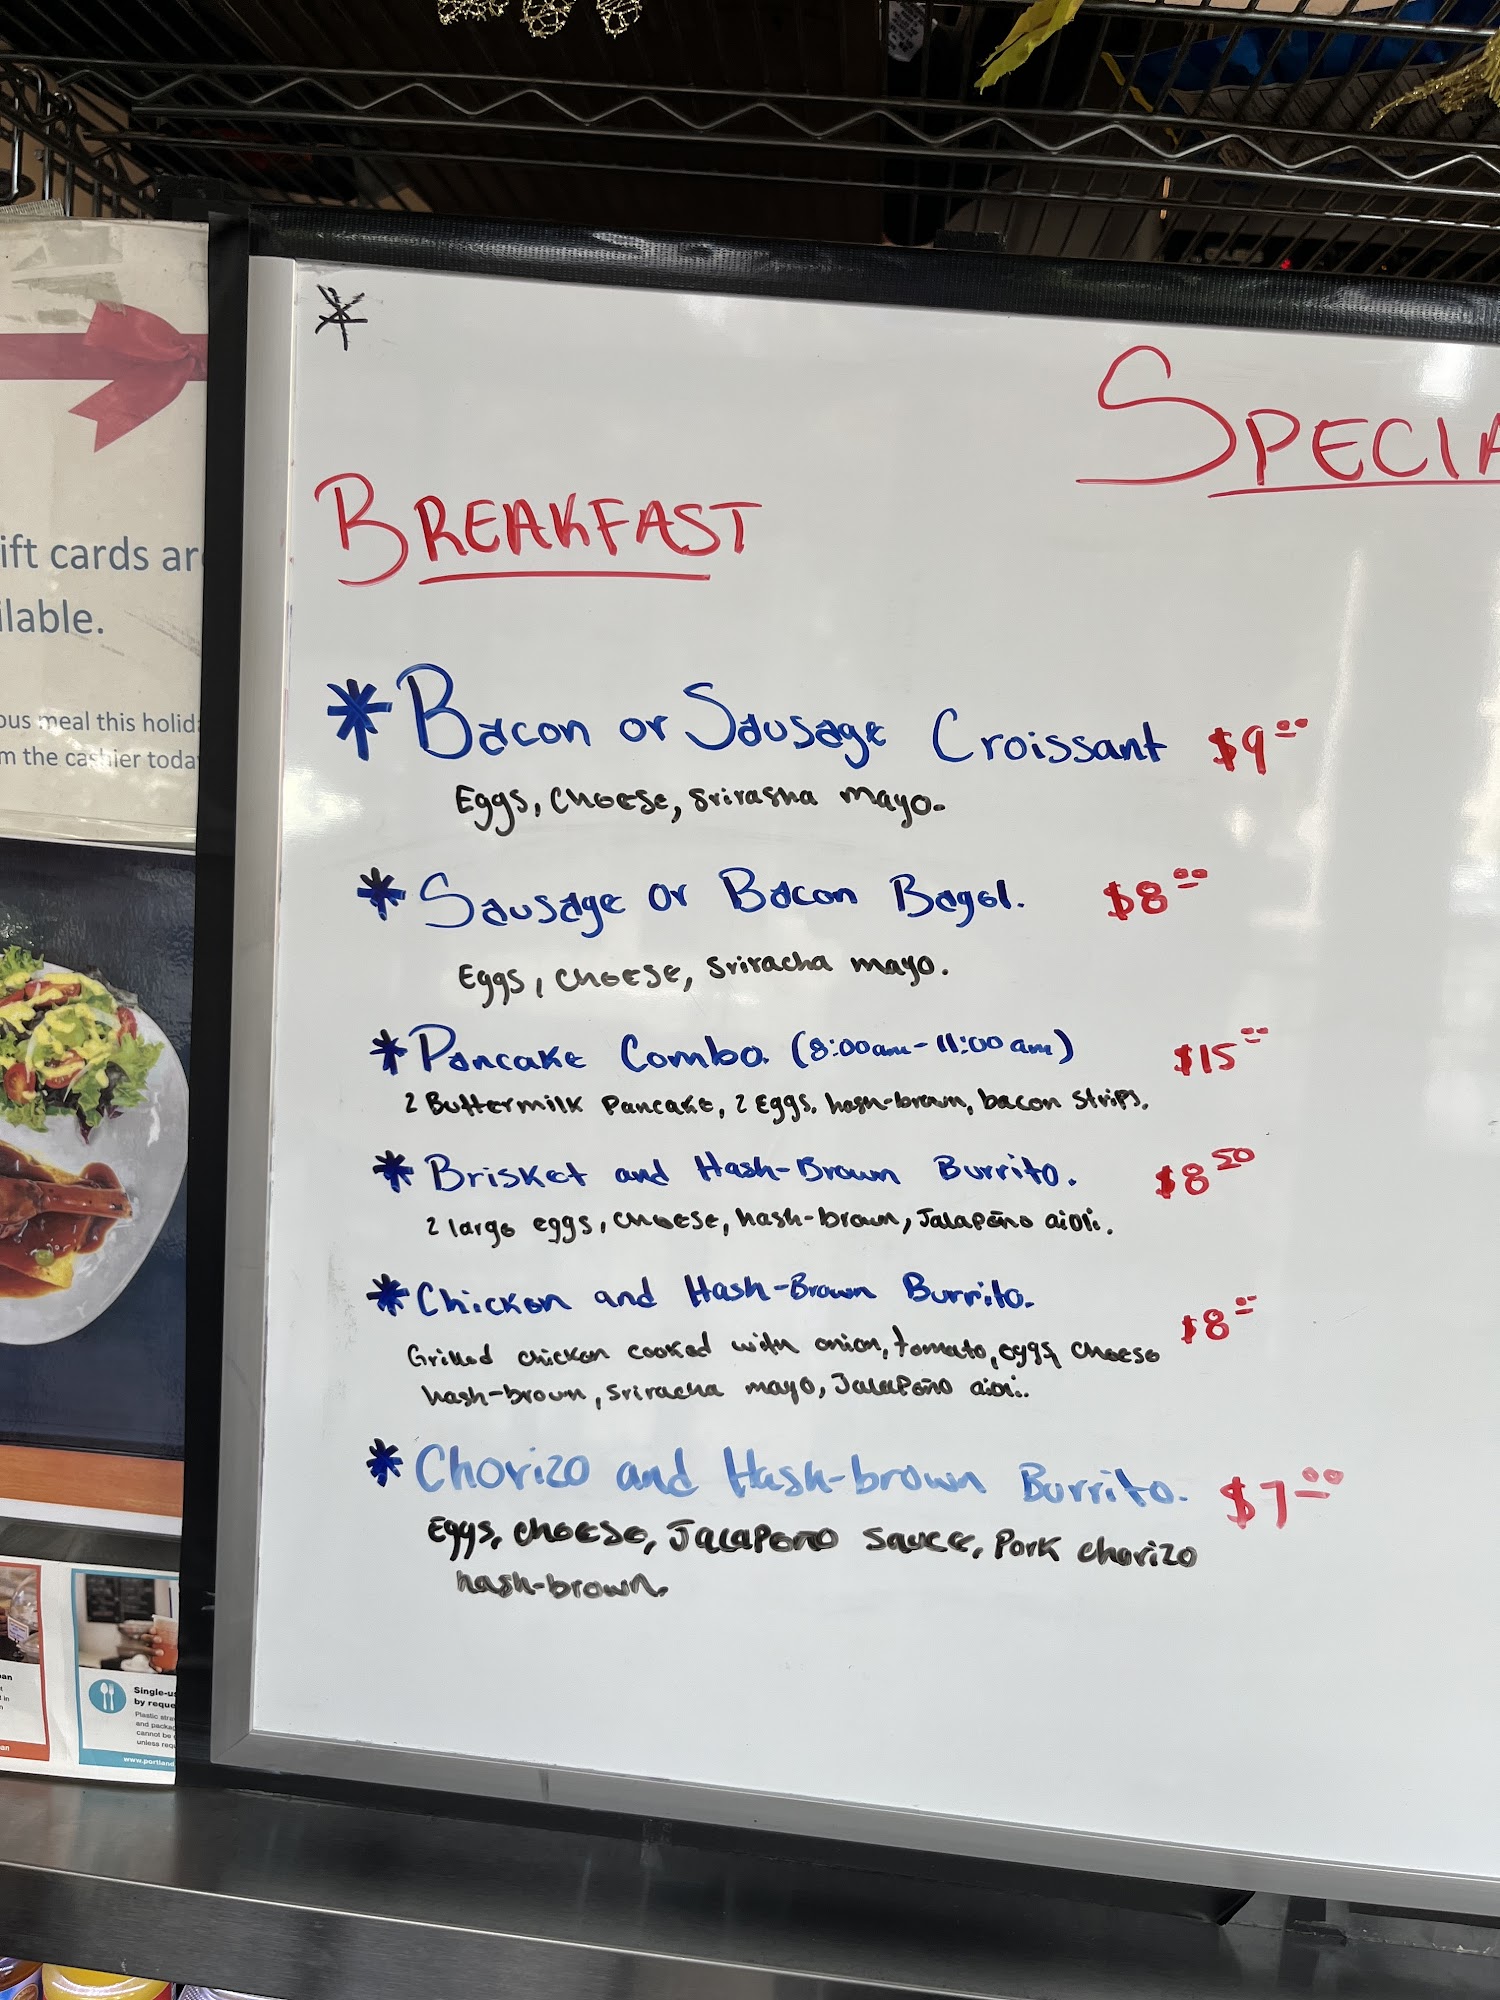 SPECIA
BREAKFAST
* Bacon or Sausage Croissant $9.00
Eggs, Cheese, Sriracha mayo.
* Sausage or Bacon Bagel. $8.00
Eggs, Cheese, Sriracha mayo.
* Pancake Combo. (8:00am-11:00am) $15
2 Buttermilk Pancake, 2 Eggs, hash-brown, bacon strips.
* Brisket and Hash-Brown Burrito. $8 50
2 large eggs, cheese, hash-brown, Jalapeño aioli.
* Chicken and Hash-Brown Burrito. $8
Grilled chicken cooked with onion, tomato, eggs, cheese
hash-brown, Sriracha mayo, Jalapeño aioli.
* Chorizo and Hash-brown Burrito. $7.00
Eggs, cheese, Jalapeño sauce, Pork chorizo
hash-brown.
ift cards ar
ilable.
ous meal this holid
m the cashier toda
Single-us
by reque
Plastic stra
and packag
cannot be
unless requ
www.portland